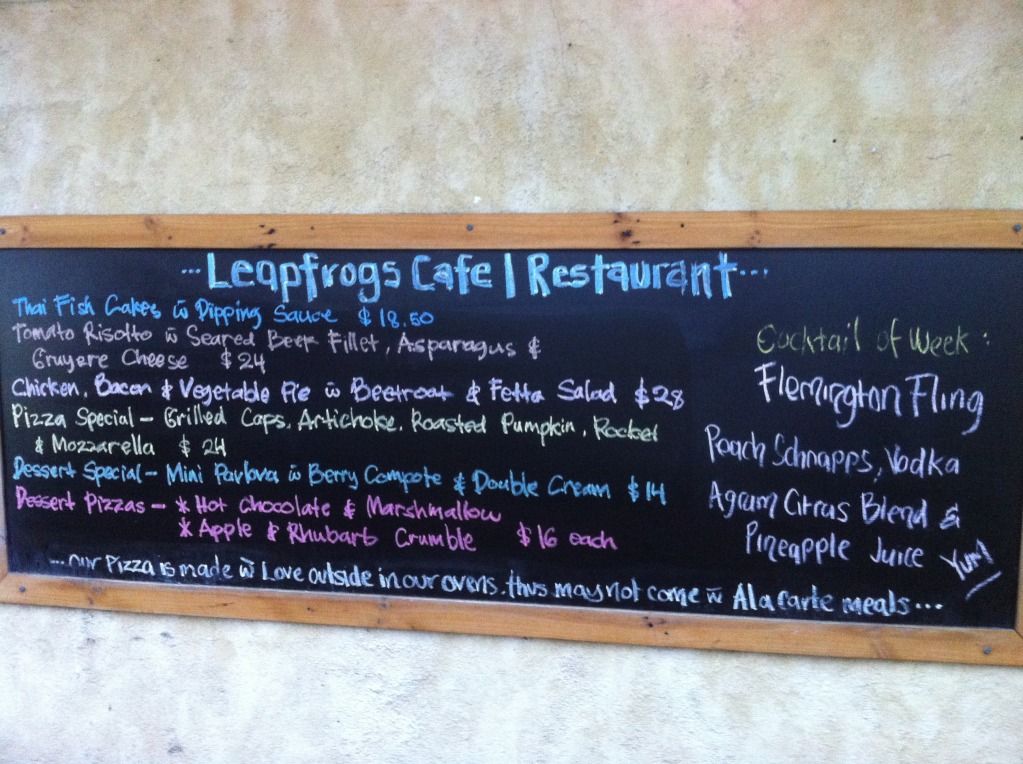 ...Leapfrogs Cafe | Restaurant...
Thai Fish Cakes w̄ Dipping Sauce $18.50
Tomato Risotto w̄ Seared Beef Fillet, Asparagus &
Gruyere Cheese $24
Chicken, Bacon & Vegetable Pie w̄ Beetroot & Fetta Salad $28
Pizza Special - Grilled Caps, Artichoke, Roasted Pumpkin, Rocket
& Mozzarella $24
Dessert Special - Mini Pavlova w̄ Berry Compote & Double Cream $14
Dessert Pizzas - * Hot Chocolate & Marshmallow
* Apple & Rhubarb Crumble $16 each
...our Pizza is made w̄ Love outside in our ovens, thus may not come w̄ A la carte meals...
Cocktail of Week:
Flemington Fling
Peach Schnapps, Vodka
Agrum Citrus Blend &
Pineapple Juice YUM